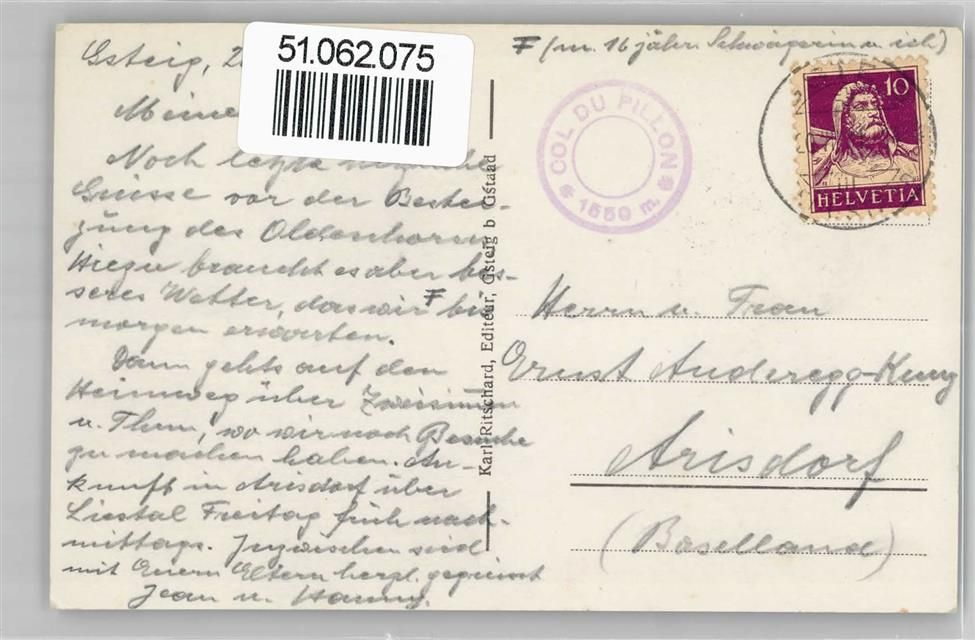 51.062.075
F (m. 16 jähr. Schwägerin u. ich)
Gsteig, 2
Meine
Noch letzte
Grüsse vor der Bestei-
gung des Oldenhorns
Hiezu braucht es aber bes-
seres Wetter, das wir F bis
morgen erwarten.
Dann gehts auf den
Heimweg über Zweisimmen
u. Thun, wo wir noch Besuche
zu machen haben. An-
kunft in Arisdorf über
Liestal Freitag früh nach-
mittags. Inzwischen sind
mit Euern Eltern herzl. gegrüsst
Jean u. Hanny.
Karl Ritschard, Editeur, Gsteig b Gstaad
COL DU PILLON
* 1550 m. *
10
HELVETIA
Herrn u. Frau
Ernst Anderegg-Kunz
Arisdorf
(Baselland)